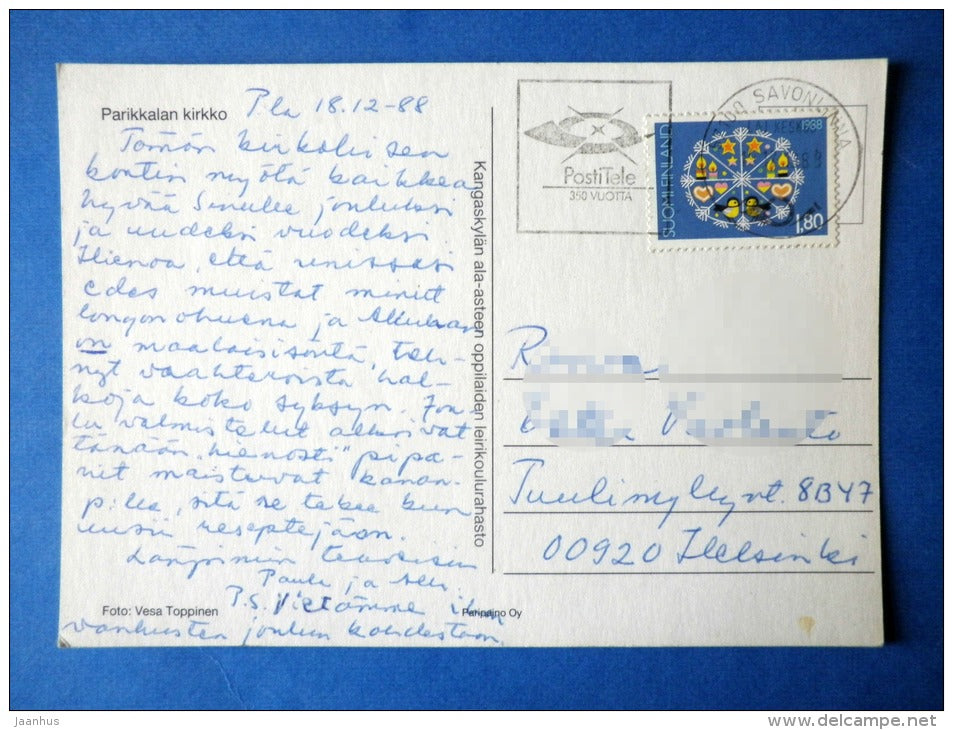 Parikkalan kirkko
Pla 18.12-88
Tämän kirkollisen
kortin myötä kaikkea
hyvää Sinulle jouluksi
ja uudeksi vuodeksi
Hienoa, että unissasi
edes muistat minut
ja
on maalaisisäntä, teh-
nyt vaahteroista hal-
koja koko syksyn. Jou-
lu valmistelut alkoivat
tänään "hienosti" pipa-
rit maistuvat kanan-
p:lle, sitä se tekee kun
uusii reseptejään.
Lämpimin terveisin
Paula ja
P.S. Vietämme
vanhusten joulun kohdestaan
Foto: Vesa Toppinen
Kangaskylän ala-asteen oppilaiden leirikoulurahasto
Paripaino Oy
PostiTele
350 VUOTTA
SAVONLINNA
SUOMI FINLAND
1988
1,80
Tuulimyllynt. 8B47
00920 Helsinki
Jaanhus
www.delcampe.net